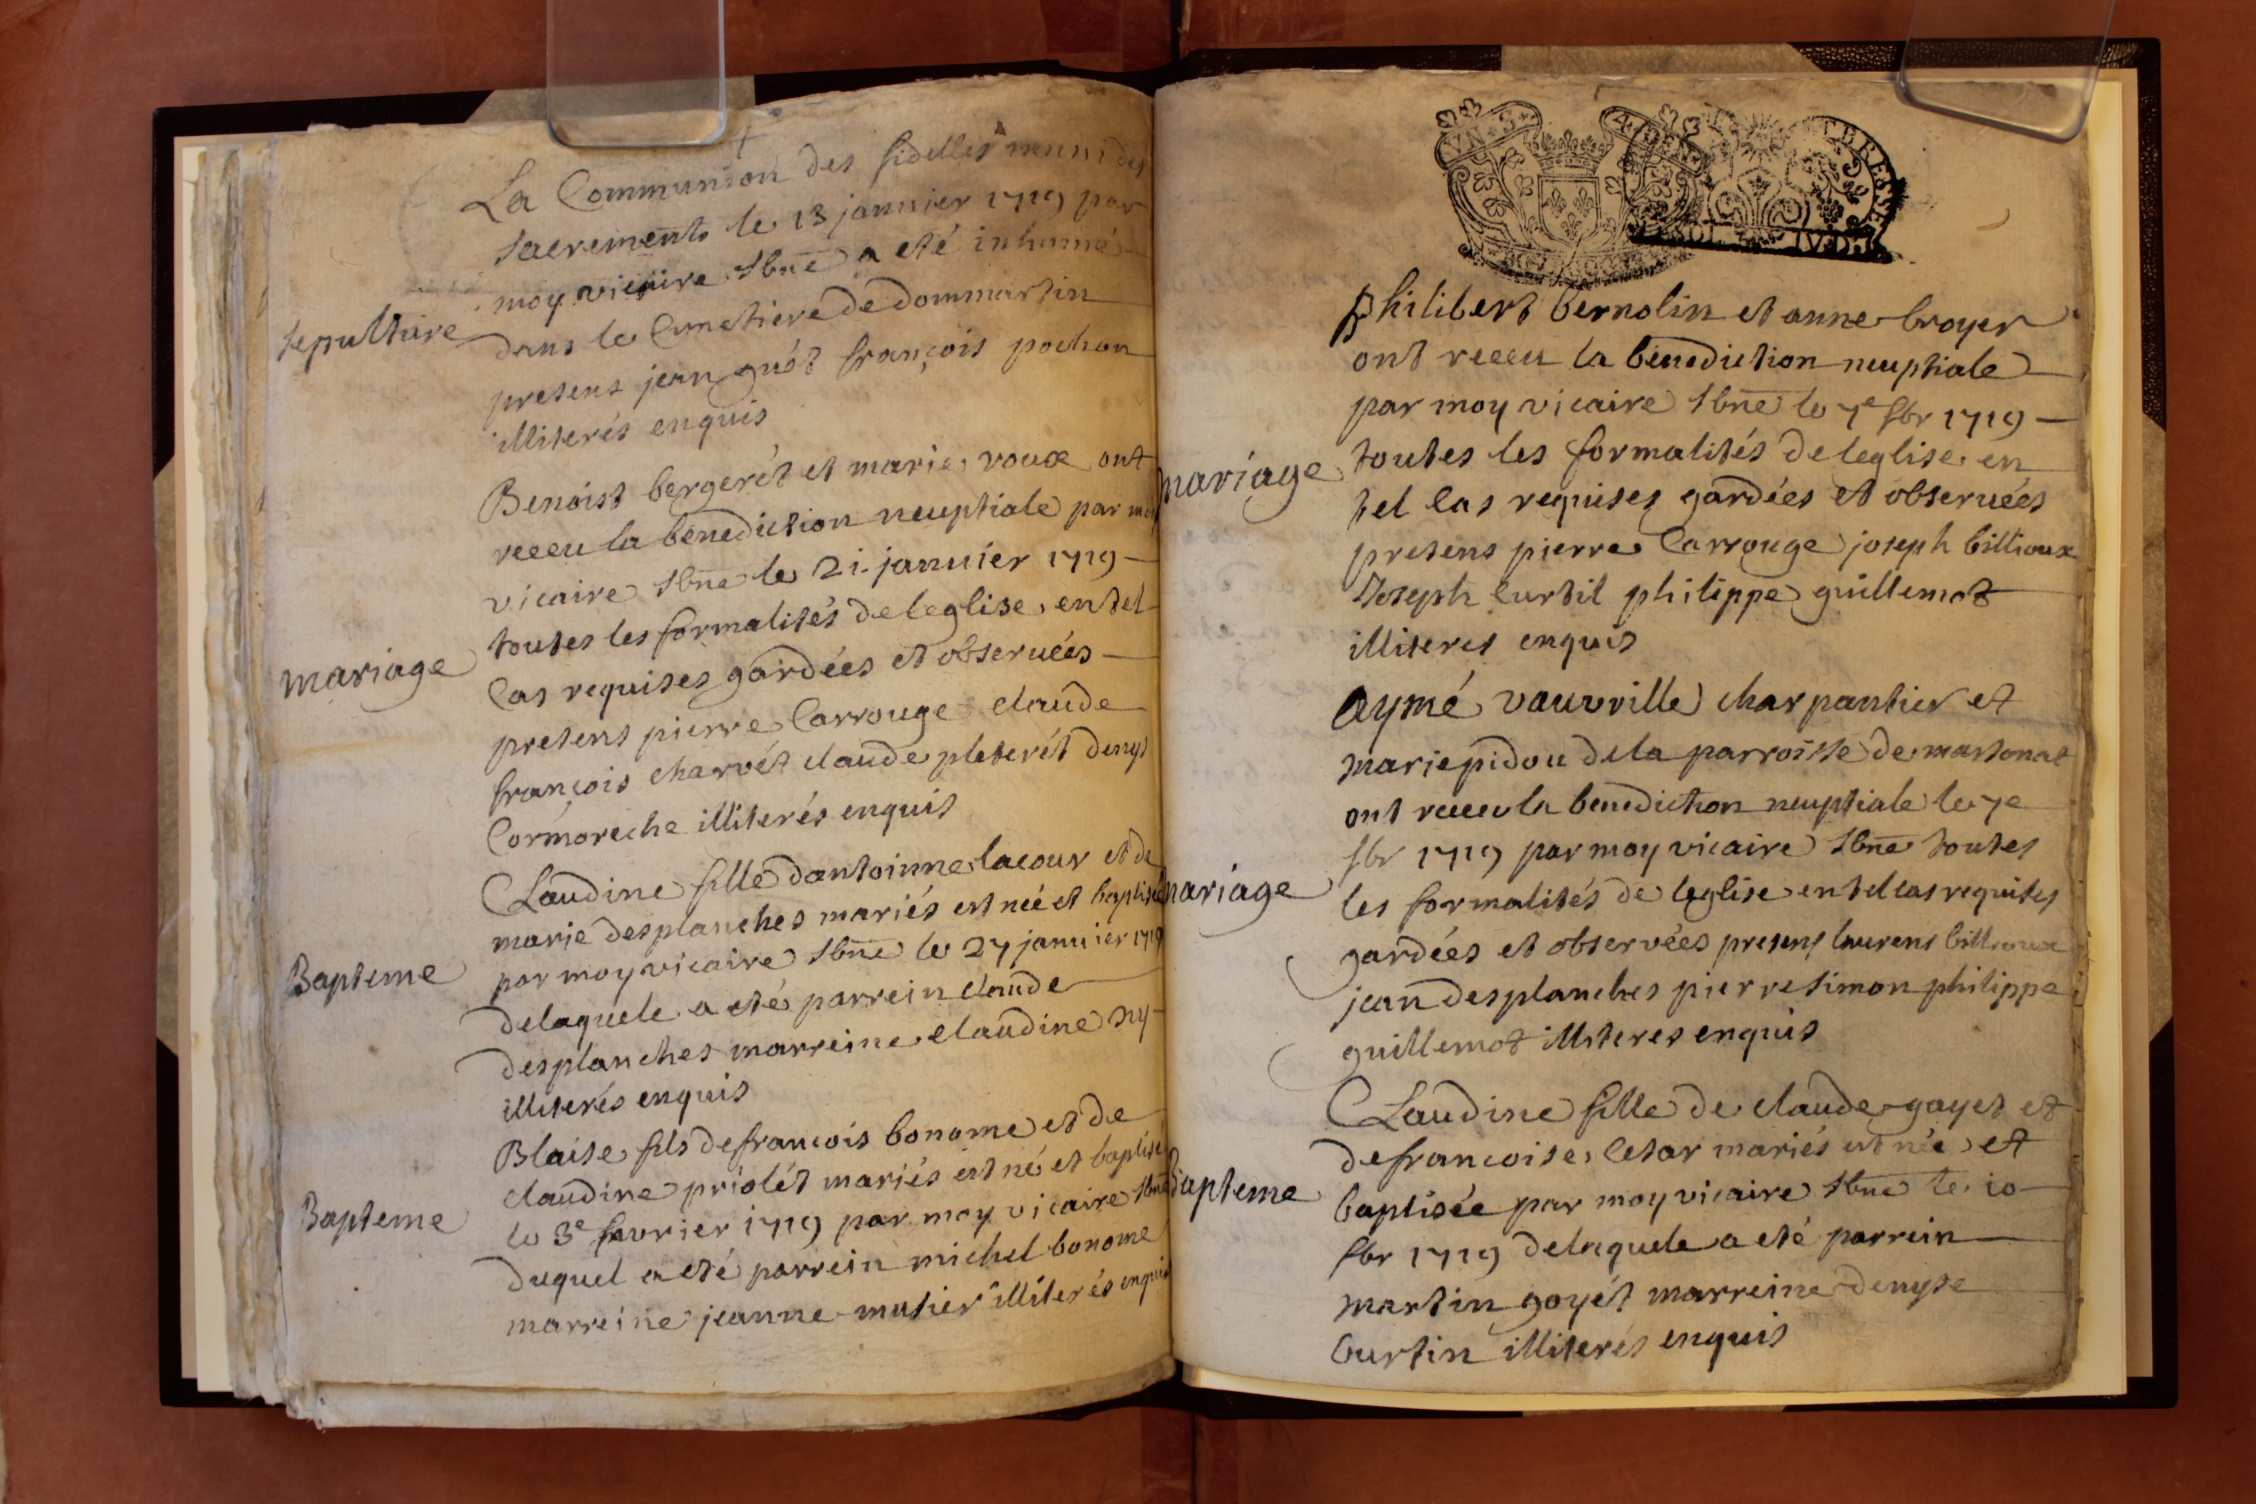 La Communion des fidelles muni des
sacrements le 13 januier 1719 par
moy vicaire sbné a eté inhumé
sepulture
dans le Cimetiere de dommartin
presens jean guét françois pochon
illiterés enquis
Benoist bergerét et marie roux ont
receu la benediction neuptiale par moy
vicaire sbné le 21 januier 1719
toutes les formalités de leglise en tel
mariage
Cas requises gardées et obseruées
presens pierre Carrouge claude
françois charvét claude pleterét denys
Cormoreche illiterés enquis
Claudine fille dantoinne lacour et de
marie desplanches mariés est née et baptisée
Bapteme
par moy vicaire sbné le 27 januier 1719
delaquele a eté parrein claude
desplanches marreine claudine ny
illiterés enquis
Blaise fils defrancois bonome et de
claudine priolét mariés est né et baptisé
Bapteme
le 3e favrier 1719 par moy vicaire sbné
duquel a eté parrein michel bonome
marreine jeanne musier illiterés enquis
VN S 4 DEN
T BRESSE
philibert bernolin et anne broyer
ont receu la benediction neuptiale
par moy vicaire sbné le 7e fbr 1719
mariage
toutes les formalités de leglise en
tel cas requises gardées et obseruées
presens pierre Carrouge joseph billioux
Joseph Curtil philippe guillemot
illiteres enquis
aymé vauvrille charpantier et
marie pidou dela parroisse de martonat
ont receu la benediction neuptiale le 7e
fbr 1719 par moy vicaire sbné toutes
mariage
les formalités de leglise en tel cas requises
gardées et observées presens laurens billioux
jean desplanches pierre simon philippe
guillemot illiteres enquis
Claudine fille de claude gayet et
defrancoise cesar mariés est née et
Bapteme
baptisée par moy vicaire sbné le 10
fbr 1719 delaquele a eté parrein
martin goyét marreine denyse
burtin illiterés enquis